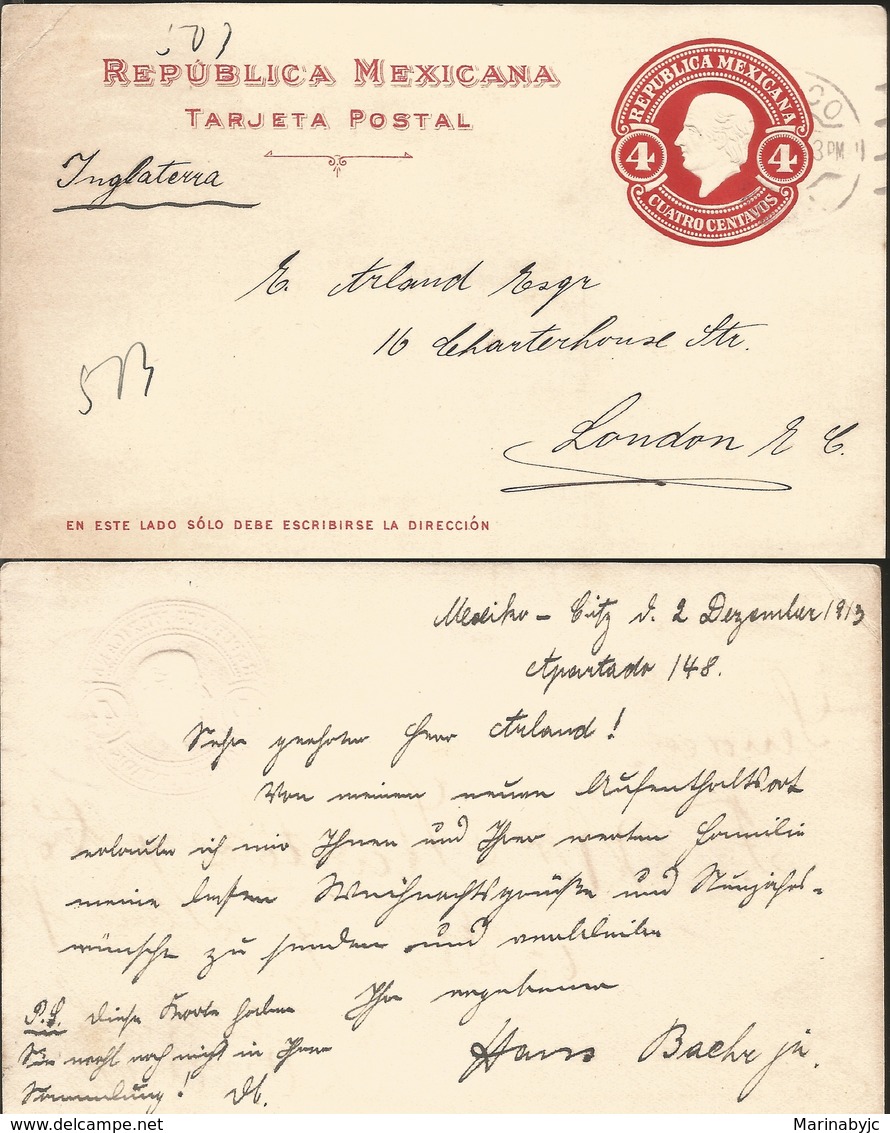 REPÚBLICA MEXICANA
TARJETA POSTAL
REPUBLICA MEXICANA
4 4
CUATRO CENTAVOS
CO
3 PM
Inglaterra
E. Arland Esqr
16 Charterhouse Str.
London E C.
EN ESTE LADO SÓLO DEBE ESCRIBIRSE LA DIRECCIÓN
Mexiko - City d. 2 Dezember 1913
Apartado 148.
Sehr geehrter Herr Arland!
Von meinem neuen Aufenthaltsort
erlaube ich mir Ihnen und Ihrer werten Familie
meine besten Weihnachtsgrüße und Neujahrs-
wünsche zu senden und verbleibe
Ihr ergebener
Hans Baehr jr.
P.S. Diese Karte haben
Sie wohl noch nicht in Ihrer
Sammlung!
Marinabyjc